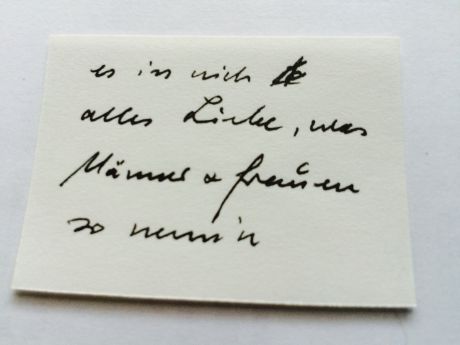 es ist nich
alles Liebe, was
Männer & Frauen
so nennen